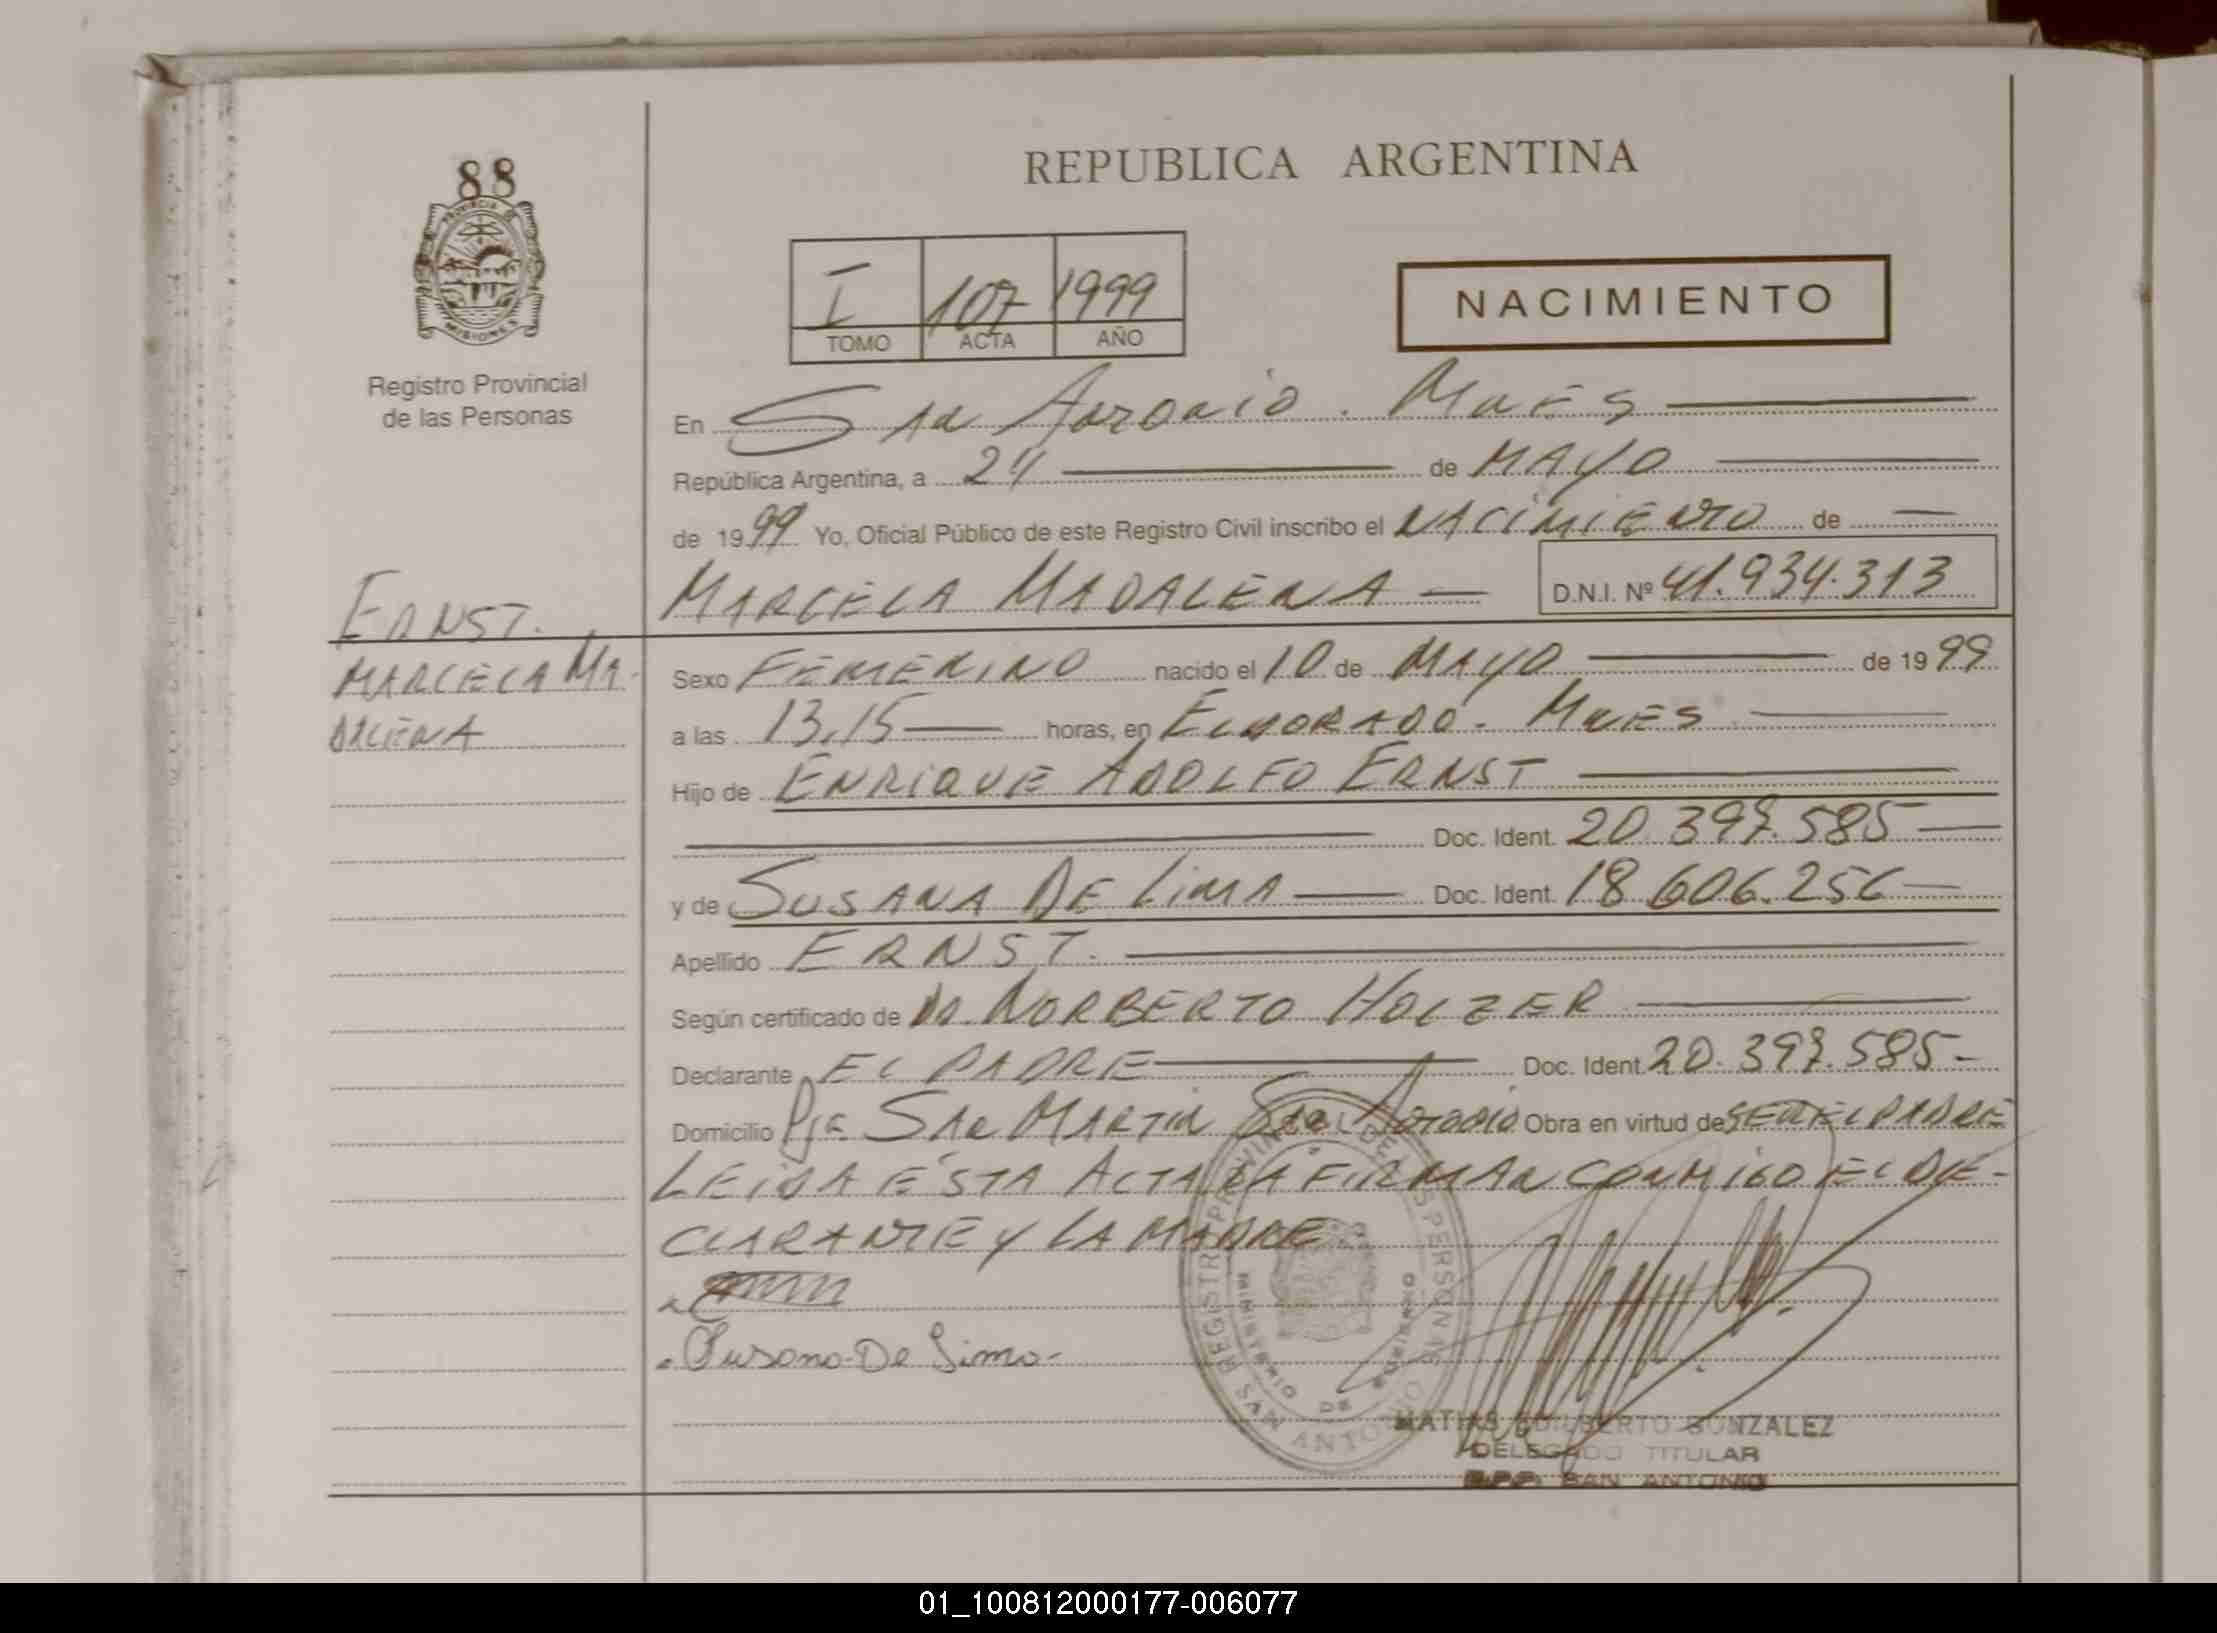 88
PROVINCIA DE
MISIONES
Registro Provincial
de las Personas
REPUBLICA ARGENTINA
I 107 1999
TOMO ACTA AÑO
NACIMIENTO
En San Antonio. Mnes
República Argentina, a 24 de MAYO
de 1999 Yo, Oficial Público de este Registro Civil inscribo el NACIMIENTO de
MARCELA MADALENA D.N.I. Nº 41.934.313
ERNST.
MARCELA MA-
DALENA
Sexo FEMENINO nacido el 10 de MAYO de 1999
a las 13,15 horas, en ELDORADO. Mnes
Hijo de ENRIQUE ADOLFO ERNST
Doc. Ident. 20.397.585
y de SUSANA DE LIMA Doc. Ident. 18.606.256
Apellido ERNST.
Según certificado de Dr. NORBERTO HOLZER
Declarante EL PADRE Doc. Ident. 20.397.585-
Domicilio Pje. SAN MARTIN San Antonio Obra en virtud de SER EL PADRE
LEIDA ESTA ACTA LA FIRMAN CONMIGO EL DE-
CLARANTE Y LA MADRE
Susana De Lima-
REGISTRO PROVINCIAL DE LAS PERSONAS
MINISTERIO DE GOBIERNO
SAN ANTONIO
MATIAS GUILBERTO GONZALEZ
DELEGADO TITULAR
SAN ANTONIO
01_100812000177-006077